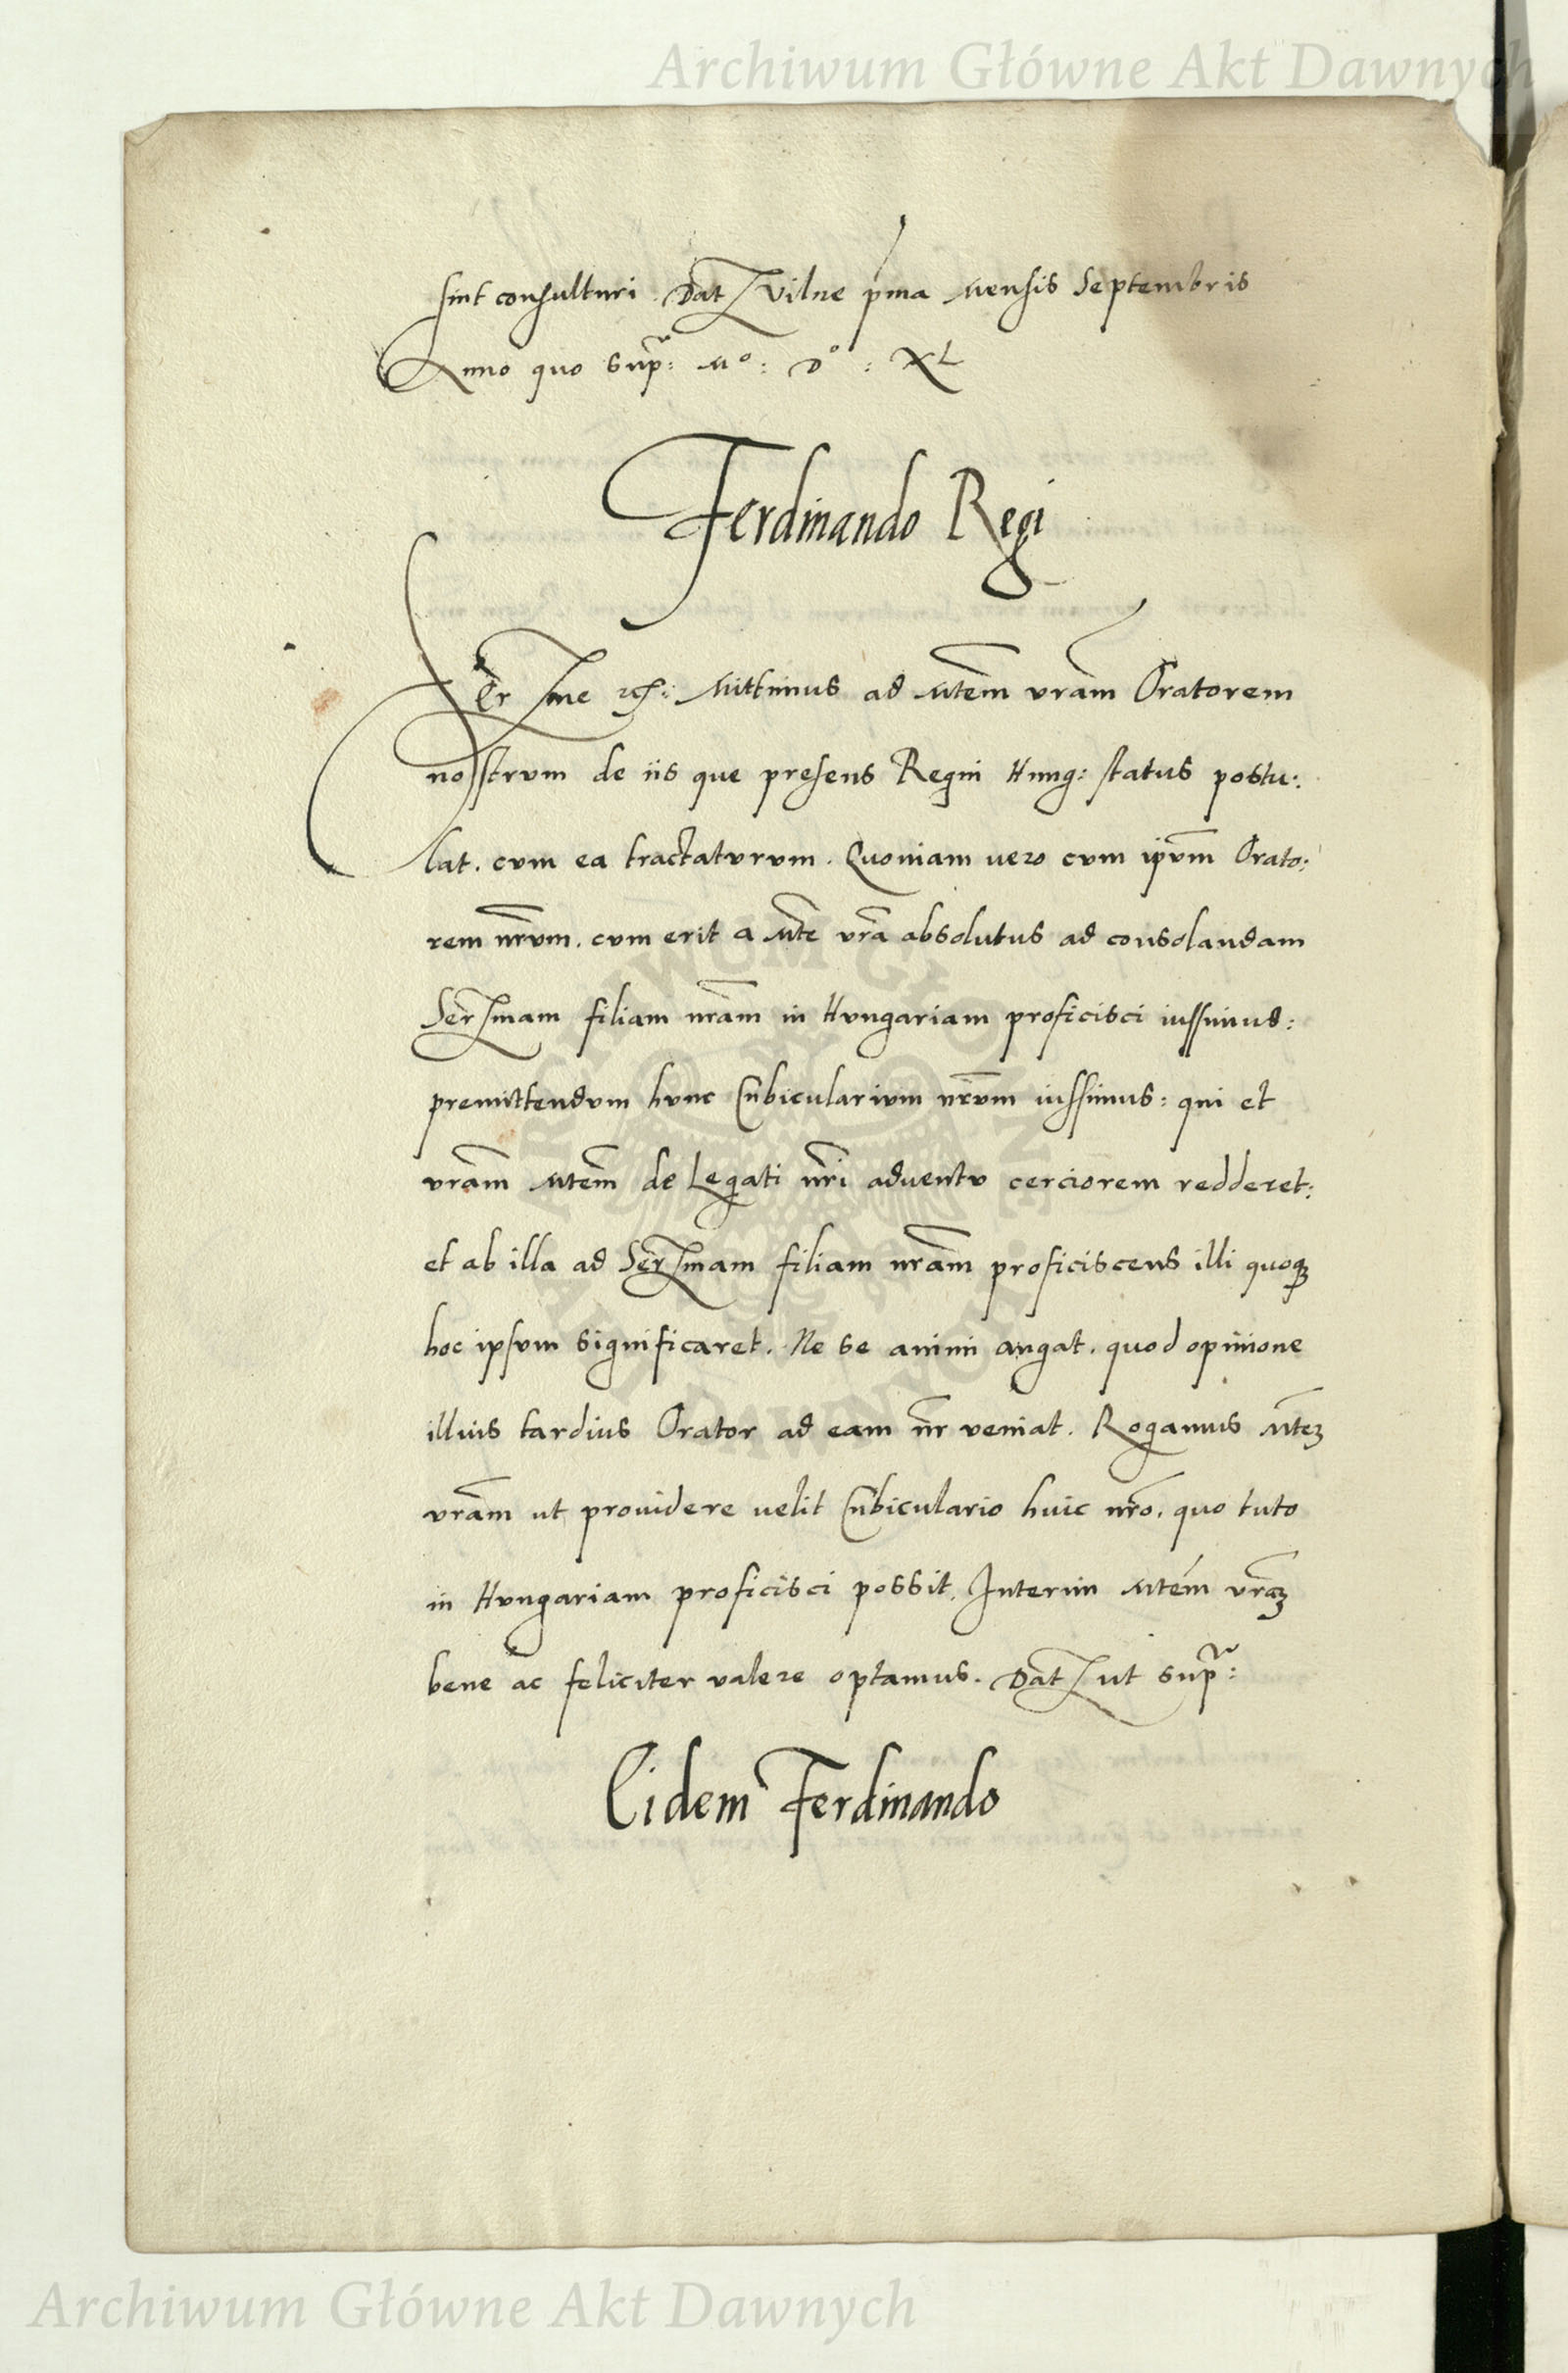 Archiwum Główne Akt Dawnych
sint consulturi. Dat Vilne pma Mensis Septembris
Anno quo supra: Mo: Do: XL
Ferdinando Regi
Ser me rex: Mittimus ad Mtem vram Oratorem
nostrum de iis que presens Regni Hung: status postu:
lat. cum ea tractaturum. Quoniam vero cum ipum Orato:
rem nrum. cum erit a Mte vra absolutus ad consolandam
Sermam filiam nram in Hungariam proficisci iussimus:
premittendum hunc Cubicularium nrum iussimus: qui et
vram Mtem de Legati nri adventu cerciorem redderet:
et ab illa ad Sermam filiam nram proficiscens illi quoqz
hoc ipsum significaret. Ne se animi angat. quod opinione
illius tardius Orator ad eam nr veniat. Rogamus Mtez
vram ut providere velit Cubiculario huic nro. quo tuto
in Hungariam proficisci possit. Interim Mtem vraz
bene ac feliciter valere optamus. Dat ut supra:
Eidem Ferdinando
Archiwum Główne Akt Dawnych